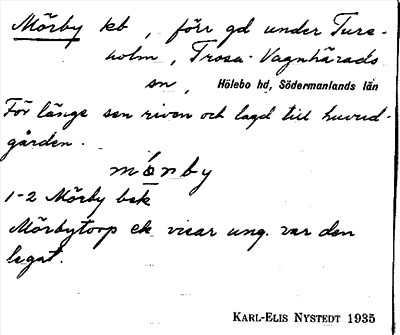 Mörby kb, förr gd under Ture-
holm, Trosa-Vagnhärads
sn, Hölebo hd, Södermanlands län
För länge sen riven och lagd till huvud-
gården.
mǿrby
1-2 Mörby bsk
Mörbytorp ek. visar ung. var den
legat.
KARL-ELIS NYSTEDT 1935